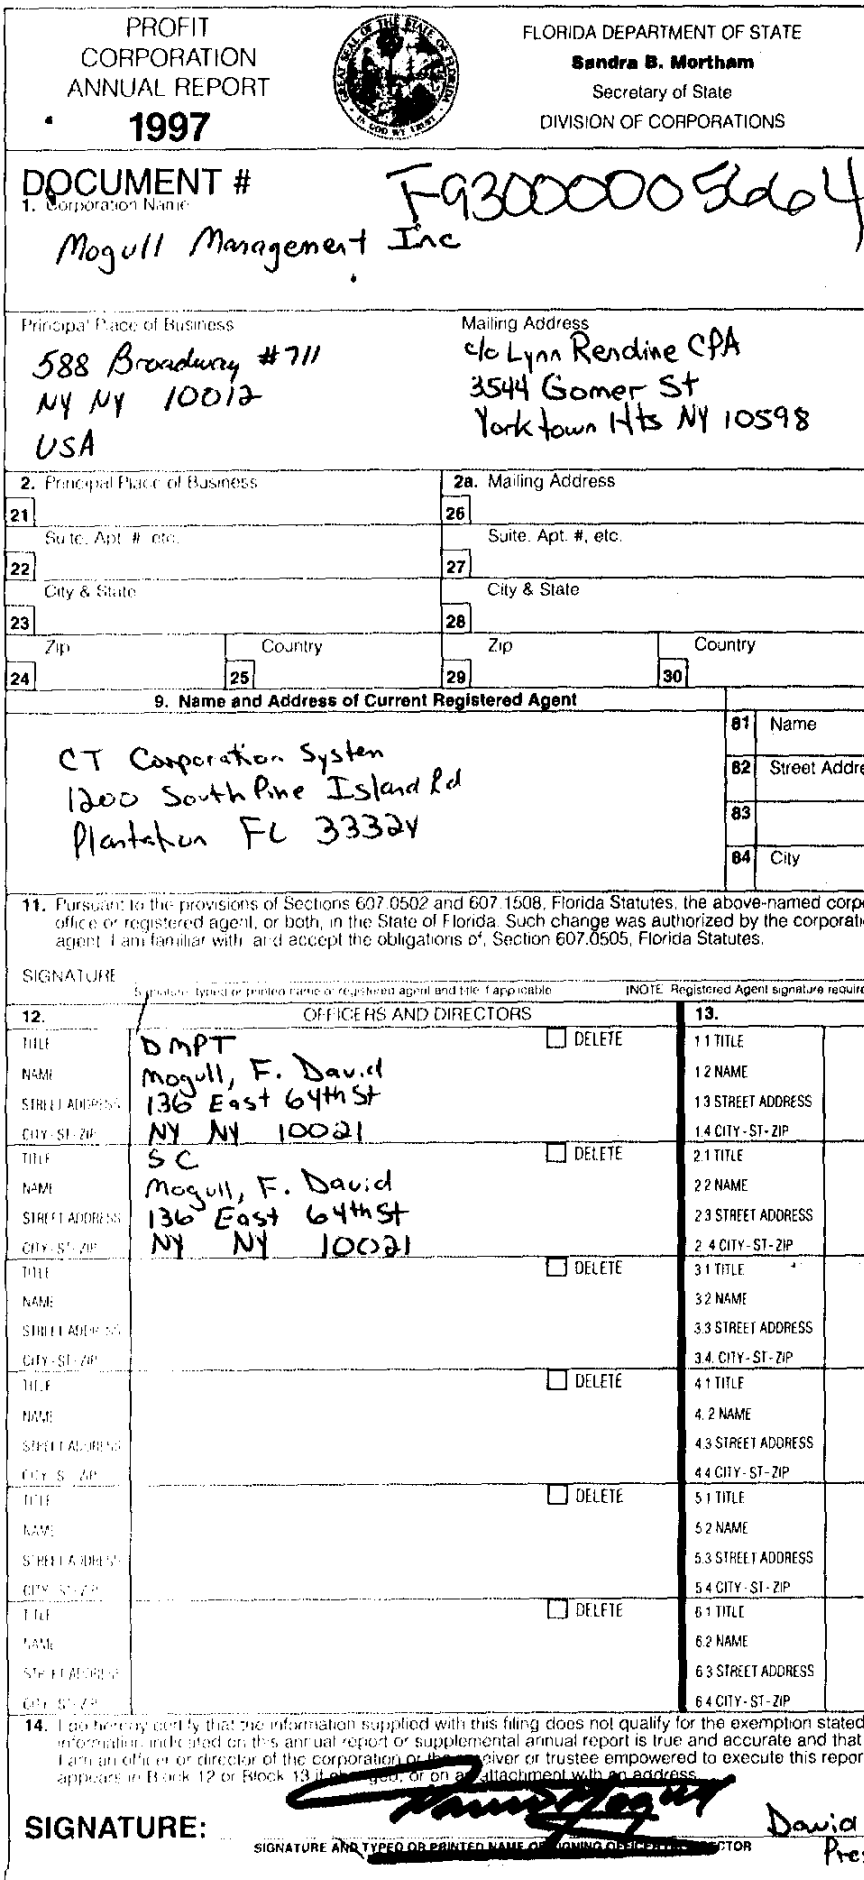 PROFIT
CORPORATION
ANNUAL REPORT
1997
GREAT SEAL OF THE STATE OF FLORIDA
IN GOD WE TRUST
FLORIDA DEPARTMENT OF STATE
Sandra B. Mortham
Secretary of State
DIVISION OF CORPORATIONS
DOCUMENT # F93000005664
1. Corporation Name
Mogull Management Inc
Principal Place of Business
588 Broadway #711
NY NY 10012
USA
Mailing Address
c/o Lynn Rendine CPA
3544 Gomer St
Yorktown Hts NY 10598
2. Principal Place of Business
2a. Mailing Address
21
26
Suite, Apt. #, etc.
Suite, Apt. #, etc.
22
27
City & State
City & State
23
28
Zip Country Zip Country
24 25 29 30
9. Name and Address of Current Registered Agent
CT Corporation System
1200 South Pine Island Rd
Plantation FL 33324
81 Name
82 Street Addre
83
84 City
11. Pursuant to the provisions of Sections 607.0502 and 607.1508, Florida Statutes, the above-named corp
office or registered agent, or both, in the State of Florida. Such change was authorized by the corporati
agent. I am familiar with, and accept the obligations of, Section 607.0505, Florida Statutes.
SIGNATURE
Signature, typed or printed name of registered agent and title if applicable (NOTE: Registered Agent signature require
12. OFFICERS AND DIRECTORS 13.
TITLE DMPT DELETE 1.1 TITLE
NAME Mogull, F. David 1.2 NAME
STREET ADDRESS 136 East 64th St 1.3 STREET ADDRESS
CITY-ST-ZIP NY NY 10021 1.4 CITY-ST-ZIP
TITLE SC DELETE 2.1 TITLE
NAME Mogull, F. David 2.2 NAME
STREET ADDRESS 136 East 64th St 2.3 STREET ADDRESS
CITY-ST-ZIP NY NY 10021 2.4 CITY-ST-ZIP
TITLE DELETE 3.1 TITLE
NAME 3.2 NAME
STREET ADDRESS 3.3 STREET ADDRESS
CITY-ST-ZIP 3.4. CITY-ST-ZIP
TITLE DELETE 4.1 TITLE
NAME 4.2 NAME
STREET ADDRESS 4.3 STREET ADDRESS
CITY-ST-ZIP 4.4 CITY-ST-ZIP
TITLE DELETE 5.1 TITLE
NAME 5.2 NAME
STREET ADDRESS 5.3 STREET ADDRESS
CITY-ST-ZIP 5.4 CITY-ST-ZIP
TITLE DELETE 6.1 TITLE
NAME 6.2 NAME
STREET ADDRESS 6.3 STREET ADDRESS
CITY-ST-ZIP 6.4 CITY-ST-ZIP
14. I do hereby certify that the information supplied with this filing does not qualify for the exemption stated
information indicated on this annual report or supplemental annual report is true and accurate and that
I am an officer or director of the corporation or the receiver or trustee empowered to execute this repor
appears in Block 12 or Block 13 if changed, or on an attachment with an address
SIGNATURE: David
Pres
SIGNATURE AND TYPED OR PRINTED NAME OF SIGNING OFFICER OR DIRECTOR